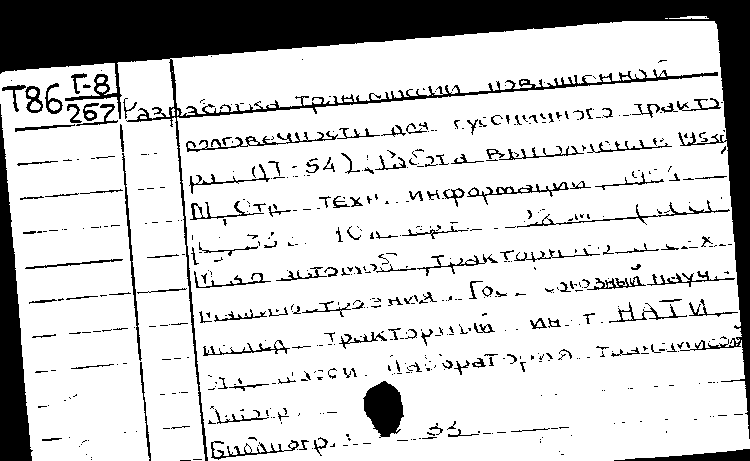 Т86 Т-8
267
Разработка трансмиссии повышенной
долговечности для гусеничного тракто
ра (ДТ-54). Работа выполнена в 1953г
М, Отд. техн. информации, 1954
33 с. 10 л. черт.
М-во автомоб., тракторного и с.х.
машиностроения. Гос. союзный науч.-
исслед. тракторный ин-т НАТИ.
Отд. шасси. Лаборатория трансмиссий
Литогр.
Библиогр.: с 33.